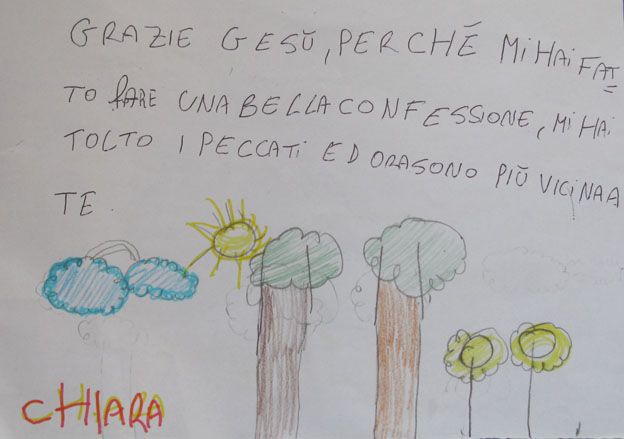 GRAZIE GESÙ, PERCHÉ Mi HAi FAT
TO fARE UNA BELLA CONFESSIONE, Mi HAi
TOLTO I PECCATi ED ORA SONO PIÙ VICINA A
TE.
CHIARA